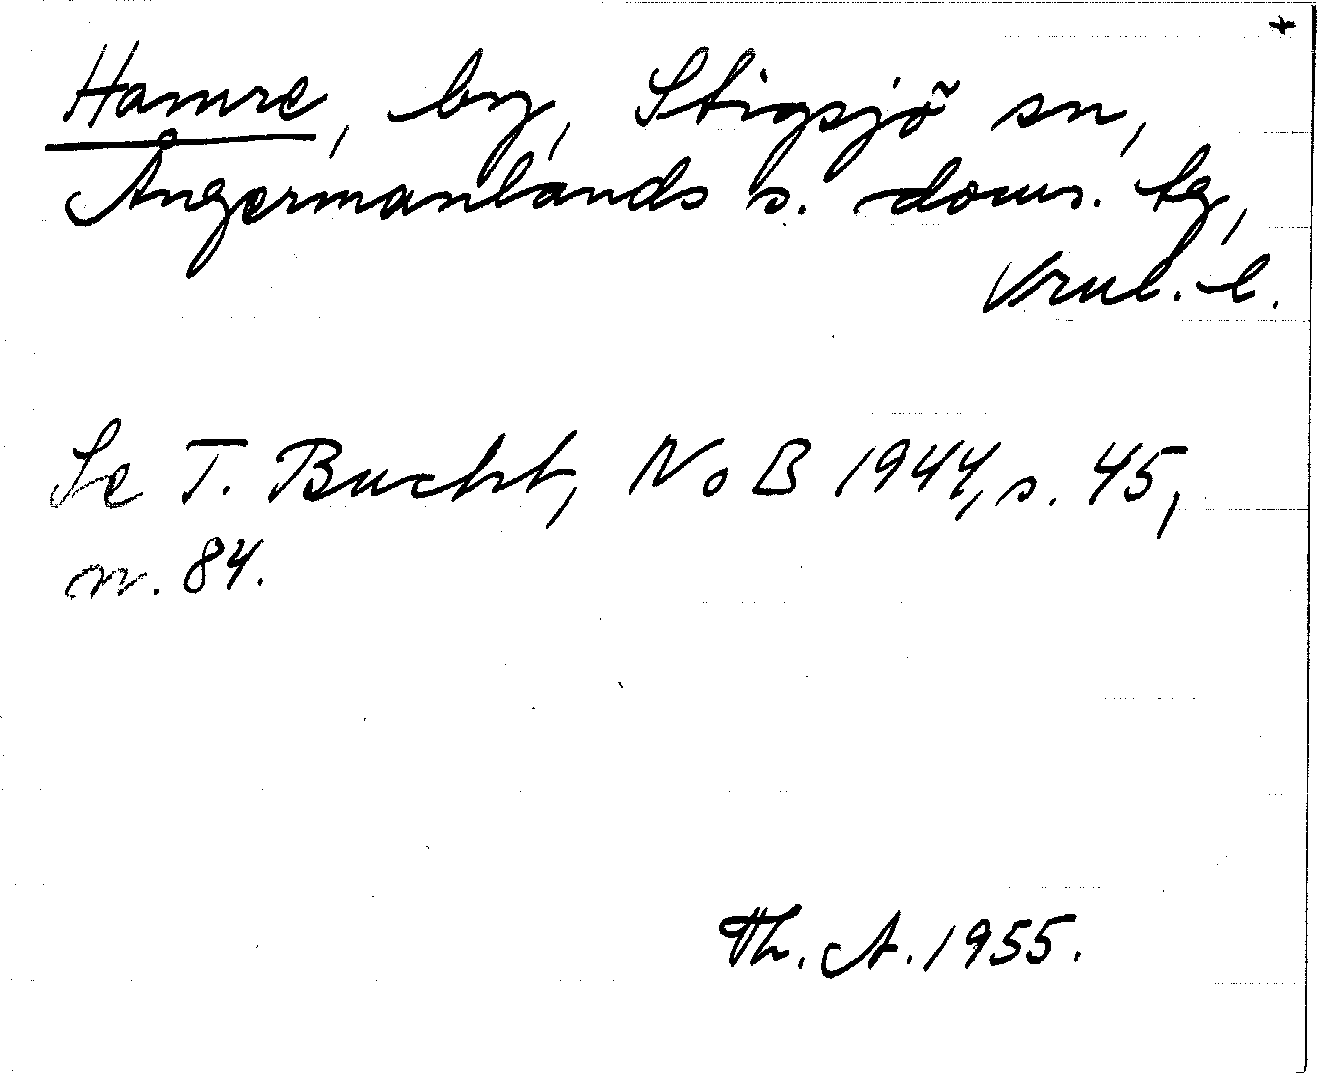 +
Hamre, by, Stigsjö sn,
Ångermanlands s. doms. tg,
Vrnl. l.
Se T. Bucht, NoB 1944, s. 45,
n. 84.
Th. A. 1955.